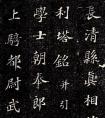 長清縣真相
利塔銘并引
學士朝奉郎
上騎都尉武